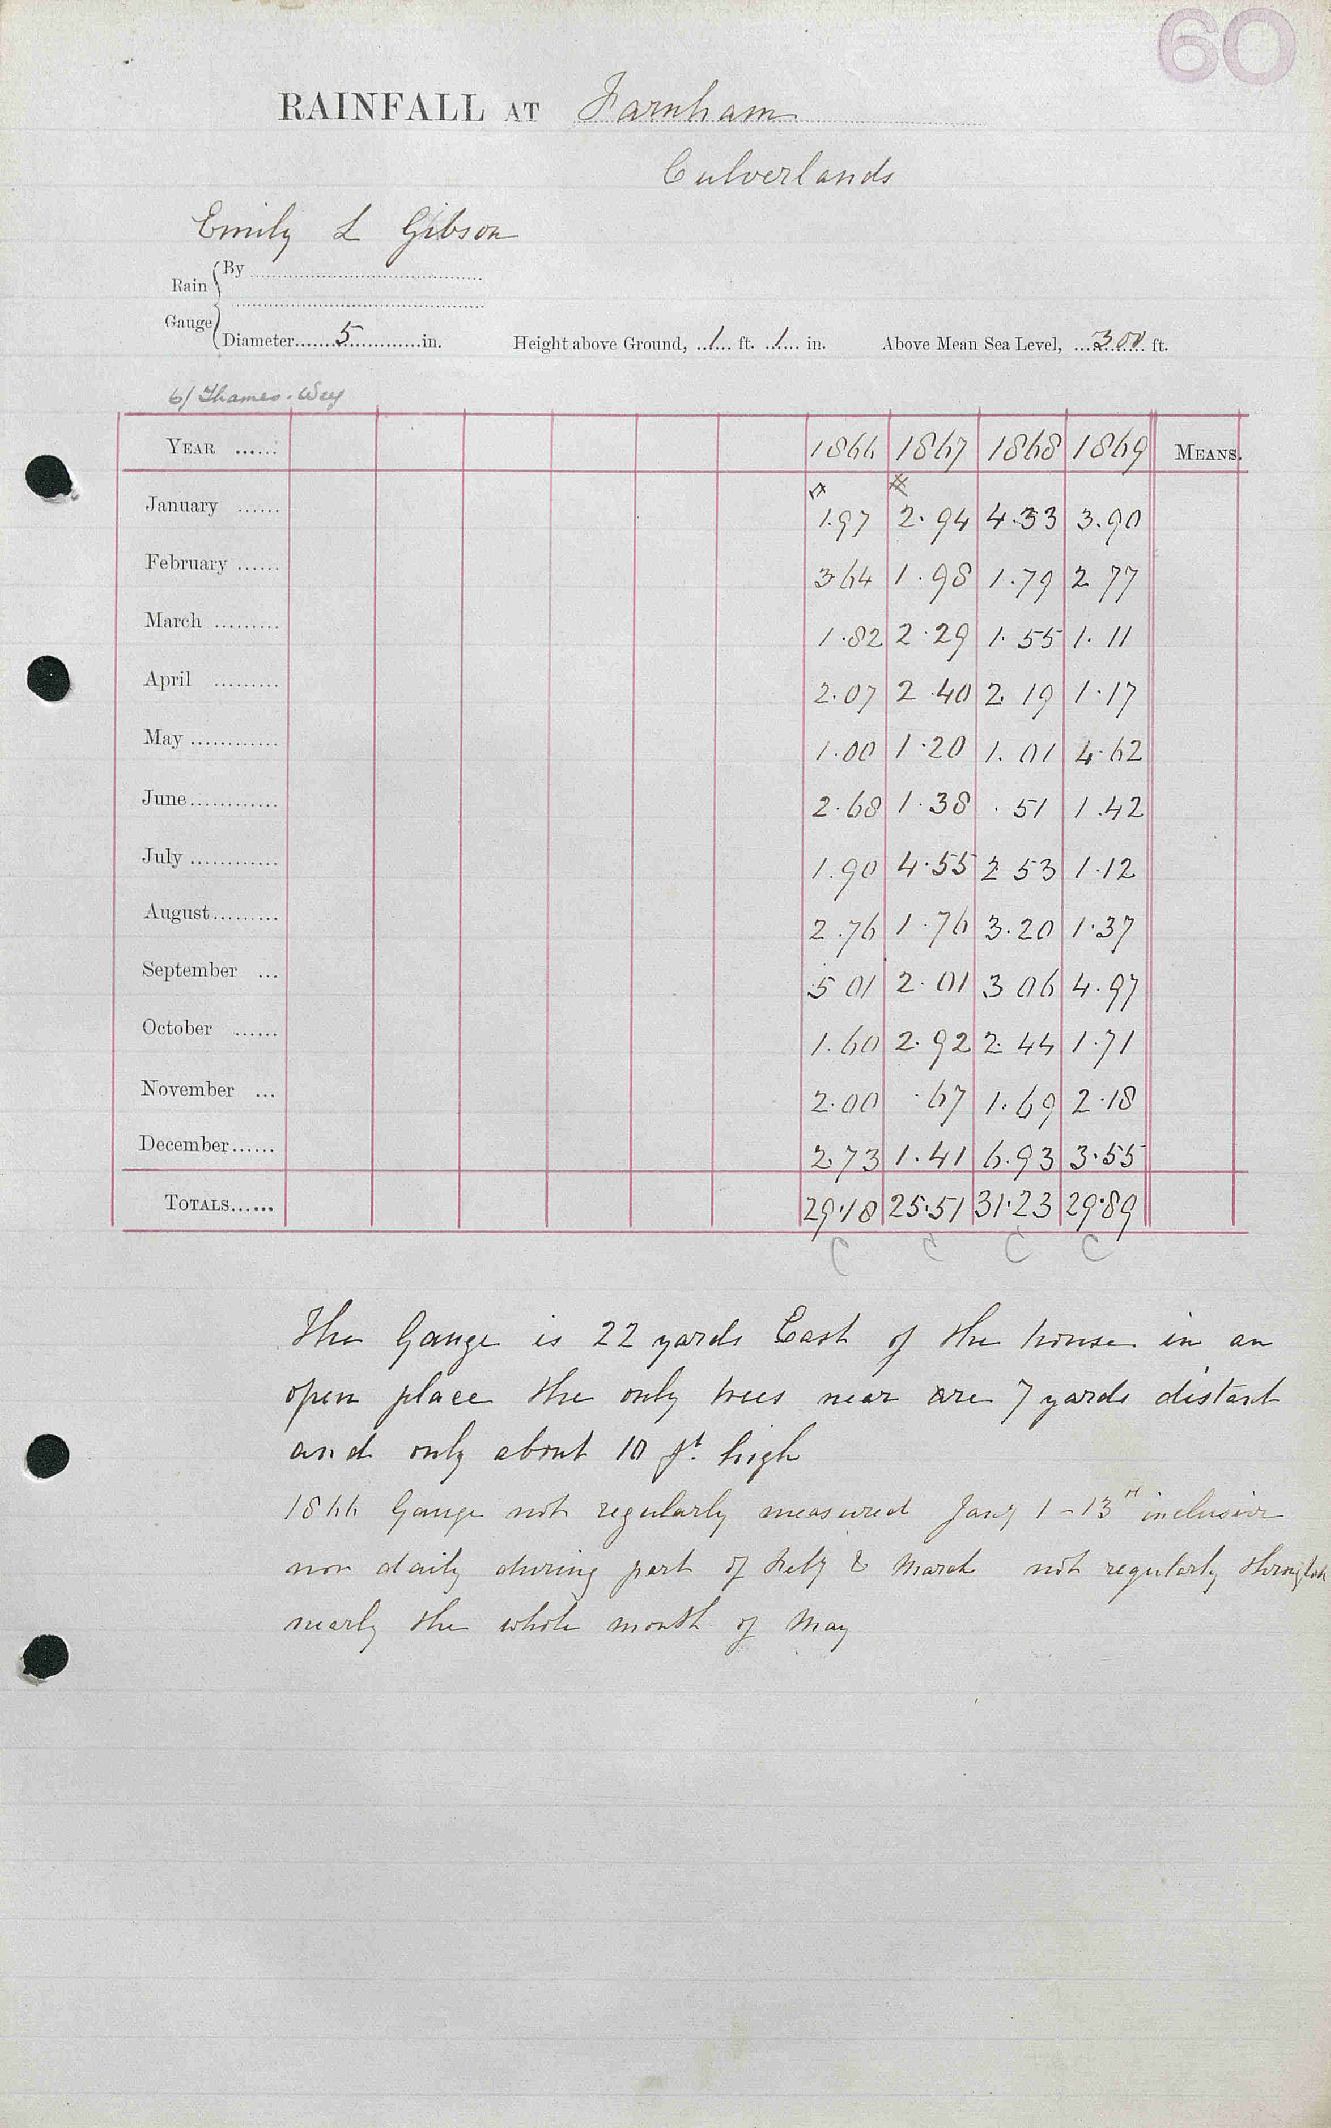 60
RAINFALL AT Farnham
Culverlands
Emily L Gibson
Rain Gauge { By
Diameter 5 in. Height above Ground, 1 ft. 1 in. Above Mean Sea Level, 300 ft.
6/ Thames. Wey
YEAR ...... 1866 1867 1868 1869 MEANS.
January ...... 1.97 2.94 4.33 3.90
February ...... 3 64 1.98 1.79 2 77
March ......... 1.82 2.29 1.55 1.11
April ......... 2.07 2.40 2.19 1.17
May ............ 1.00 1.20 1.01 4.62
June............ 2.68 1.38 .51 1.42
July ............ 1.90 4.55 2 53 1.12
August......... 2.76 1.76 3.20 1.37
September ... 5 01 2.01 3 06 4.97
October ...... 1.60 2.92 2.44 1.71
November ... 2.00 .67 1.69 2.18
December...... 2.73 1.41 6.93 3.55
TOTALS...... 29.18 25.51 31.23 29.89
C C C C
The Gauge is 22 yards East of the house in an
open place the only trees near are 7 yards distant
and only about 10 ft. high
1866 Gauge not regularly measured Jany 1-13th inclusive
nor daily during part of Feby & March not regularly through
nearly the whole month of May